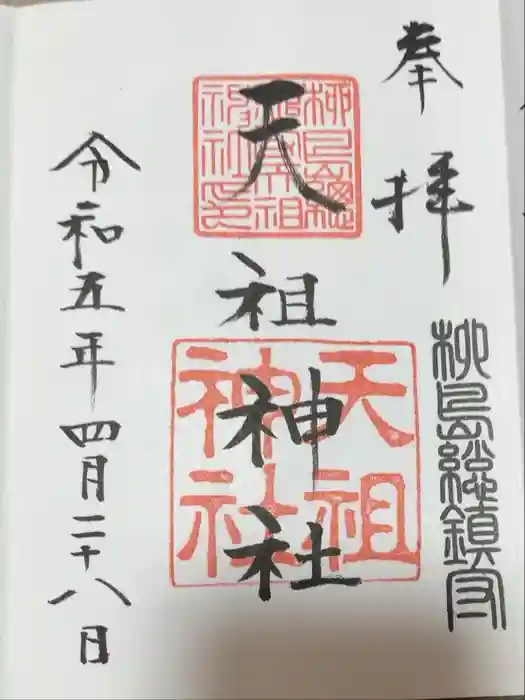 奉拝
柳島総鎮守
天祖神社
柳島總鎮守天祖神社印
天祖神社
令和五年四月二十八日